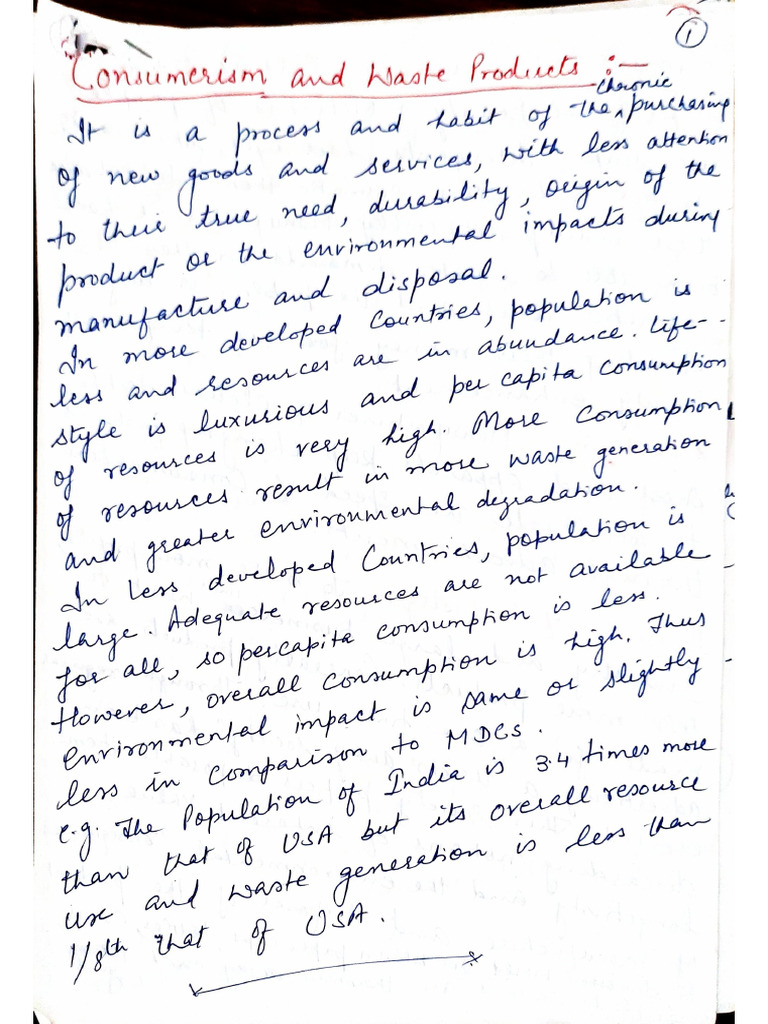 1
Consumerism and Waste Products :-
It is a process and habit of the chronic purchasing
of new goods and services, with less attention
to their true need, durability, origin of the
product or the environmental impacts during
manufacture and disposal.
In more developed Countries, population is
less and resources are in abundance. Life-
style is luxurious and per capita consumption
of resources is very high. More Consumption
of resources result in more waste generation
and greater environmental degradation.
In Less developed Countries, population is
large. Adequate resources are not available
for all, so percapita consumption is less.
However, overall consumption is high. Thus
environmental impact is same or slightly
less in comparison to MDCs.
e.g. The Population of India is 3.4 times more
than that of USA but its overall resource
use and waste generation is less than
1/8th that of USA.